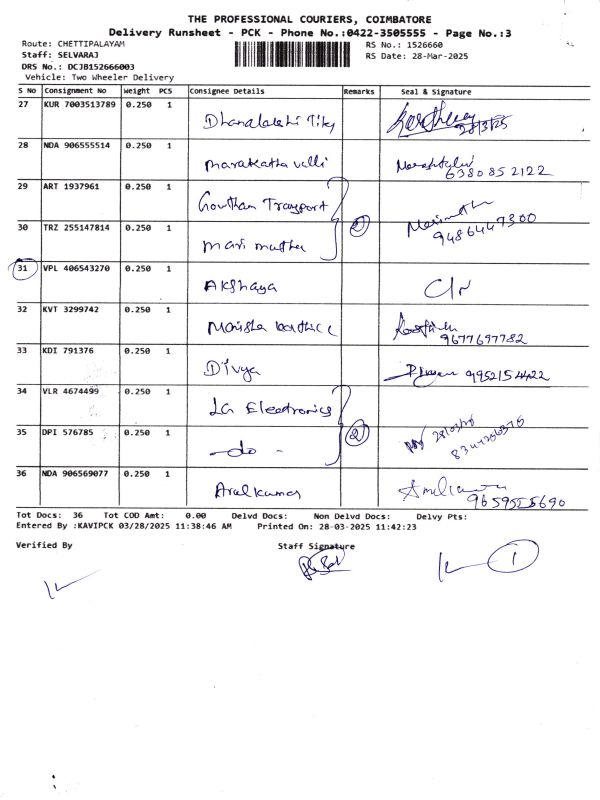 THE PROFESSIONAL COURIERS, COIMBATORE
Delivery Runsheet - PCK - Phone No.:0422-3505555 - Page No.:3
Route: CHETTIPALAYAM RS No.: 1526660
Staff: SELVARAJ RS Date: 28-Mar-2025
DRS No.: DCJB152666003
Vehicle: Two Wheeler Delivery
S No Consignment No Weight PCS Consignee Details Remarks Seal & Signature
27 KUR 7003513789 0.250 1 28/3/25
28 NDA 906555514 0.250 1 6380852122
29 ART 1937961 0.250 1 Goutham Transport
30 TRZ 255147814 0.250 1 Mari muthu 2 9486447300
31 VPL 406543270 0.250 1 Akshaya
32 KVT 3299742 0.250 1 9677697782
33 KDI 791376 0.250 1 Divya 9952154422
34 VLR 4674499 0.250 1 La Electronics
35 DPI 576785 0.250 1 -do- 2 28/03/25
36 NDA 906569077 0.250 1 Arulkumar
Tot Docs: 36 Tot COD Amt: 0.00 Delvd Docs: Non Delvd Docs: Delvy Pts:
Entered By :KAVIPCK 03/28/2025 11:38:46 AM Printed On: 28-03-2025 11:42:23
Verified By Staff Signature
1